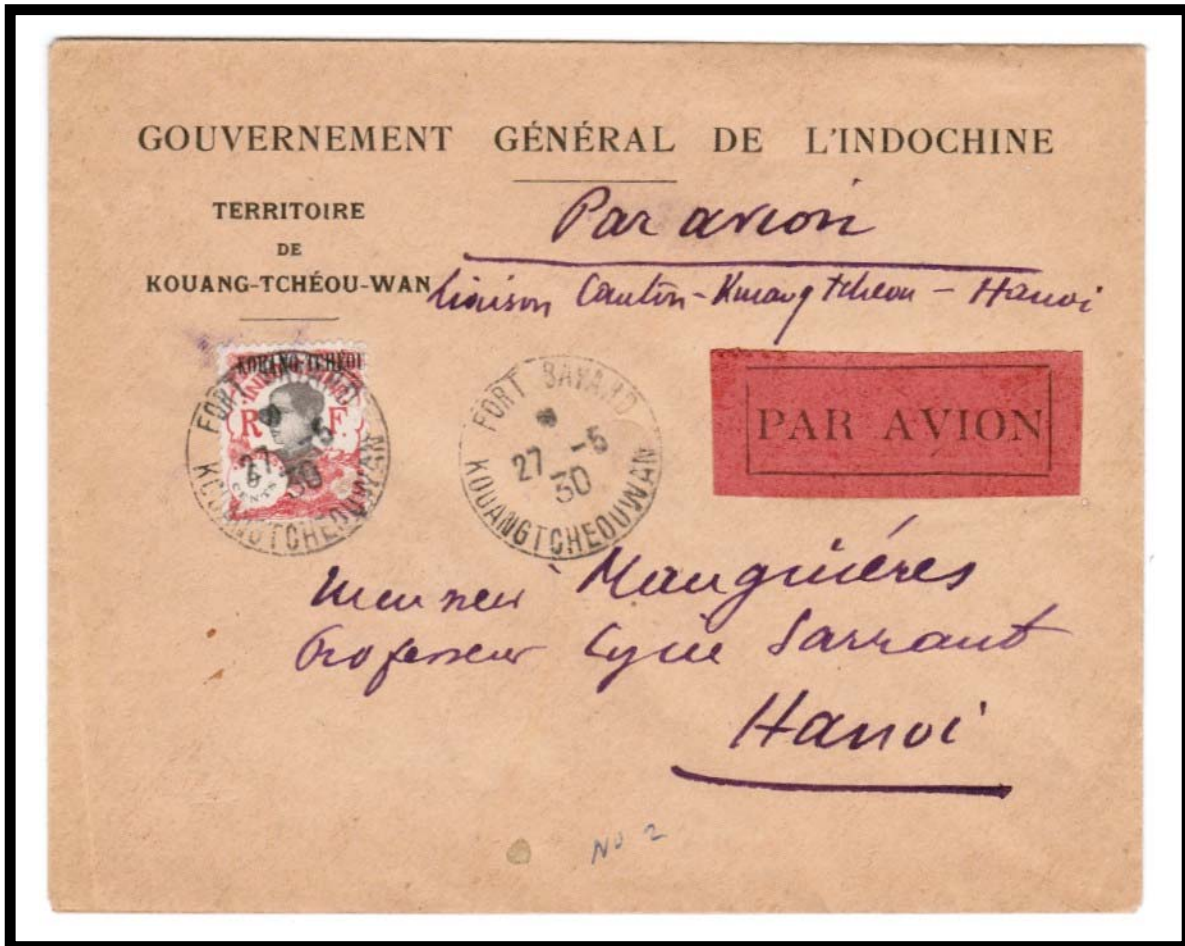 GOUVERNEMENT GÉNÉRAL DE L'INDOCHINE
TERRITOIRE
DE
KOUANG-TCHÉOU-WAN
Par avion
liaison Canton-Kuangtcheou - Hanoi
KOUANG-TCHÉOU
R F
6
CENTS
FORT BAYARD
27 -5
30
KOUANGTCHEOUWAN
FORT BAYARD
27 -5
30
KOUANGTCHEOUWAN
PAR AVION
Monsieur Mauguiéres
Professeur Lycée Sarraut
Hanoi
No 2